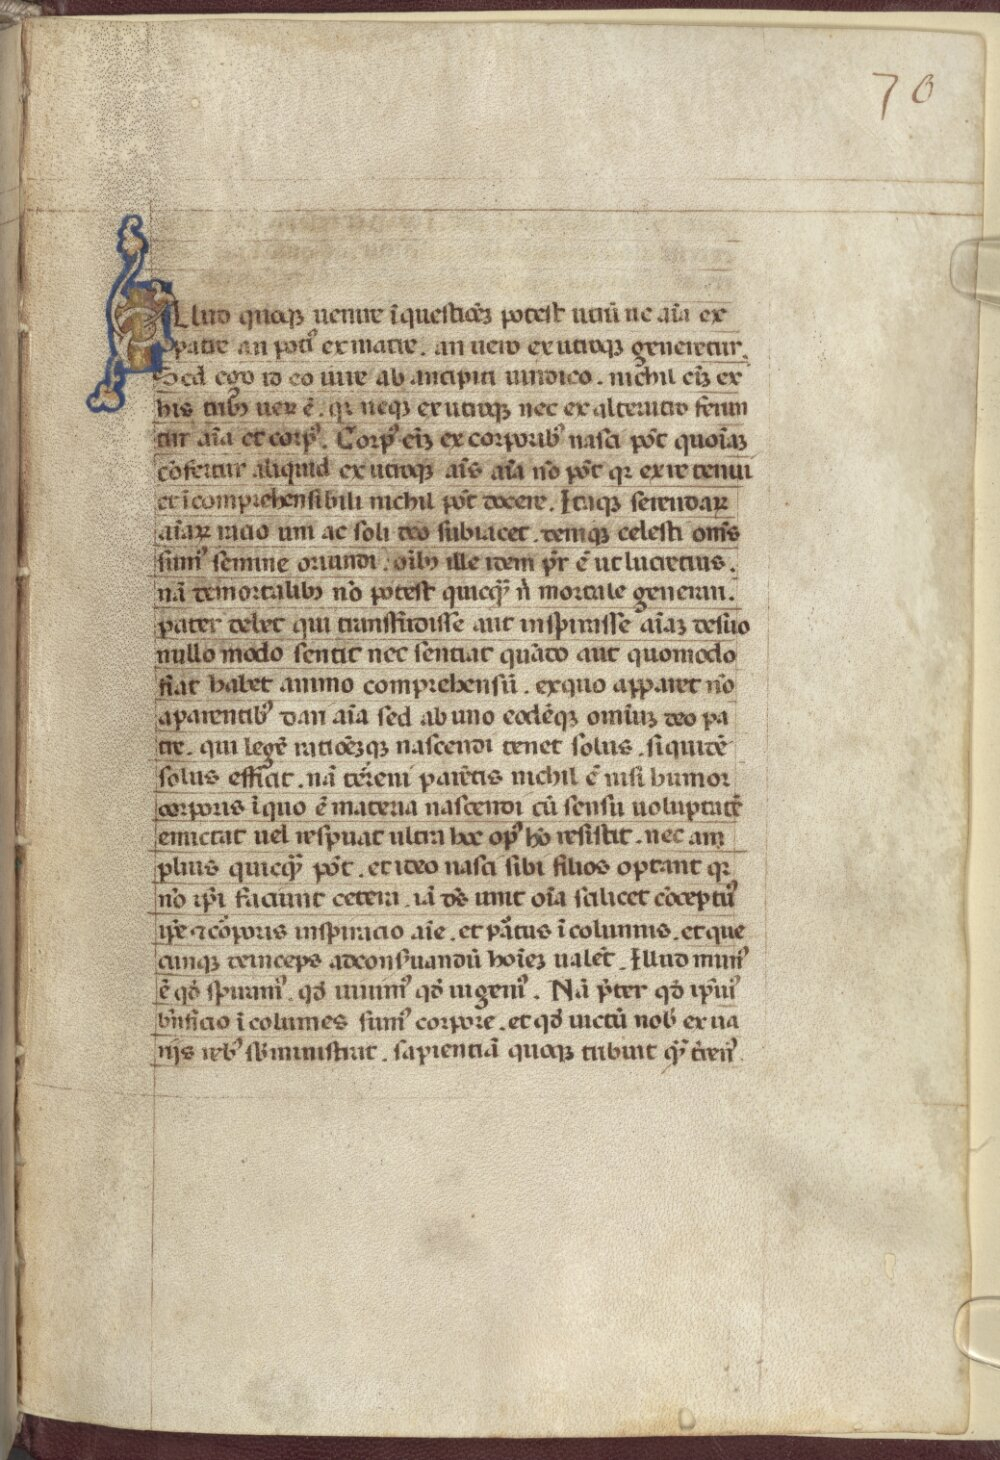 70
Illud quoqꝫ uenire ī questiōēꝫ potest utrū ne aīa ex
patre an poti᾽ ex matre. an uero ex utroqꝫ generetur.
Sed ego id eo iure ab ancipiti uindico. nichil eīꝫ ex
his tribꝫ uerꝝ ē. qꝛ neqꝫ ex utroqꝫ nec ex alterutro serun
tur aīa et corp᾽. Corp᾽ eīꝫ ex corporib᾽ nasci pōt quoīaꝫ
cōfertur aliquid ex utroqꝫ aīs aīa nō pōt qꝛ ex re tenui
et īcomprehensibili nichil pōt decere. Itaqꝫ serendaꝝ
aīaꝝ racio uni ac soli deo subiacet. deniqꝫ celesti om̄s
sum᾽ semine oriundi. oīb᾽ ille idem pr̄ ē ut lucretius.
nā de mortalibꝫ nō potest quicqꝫ̄ n̄ mortale generari.
pater debet qui transfūdisse aut inspirasse aīaꝫ de suo
nullo modo sentit nec sentiat quādo aut quomodo
fiat habet animo comprehensū. ex quo apparet nō
aparentib᾽ dari aīa sed ab uno eodēqꝫ omīuꝫ deo pa
tre. qui legē ratiōēꝫqꝫ nascendi tenet solus. siquidē
solus efficit. nā terreni parētis nichil ē nisi humor
corporis ī quo ē materia nascendi cū sensu uoluptatē
emictat uel respuat ultra hoc op᾽ hō resistit. nec am
plius quicqꝫ̄ pōt. et ideo nasci sibi filios optant qꝛ
nō ipī faciunt cetera. iā ds̄ unit oīa scilicet cōceptu᾽
ip̄e ⁊ cōꝑoris inspiracio aīe. et ꝑt᾽us ī columis. et que
cunqꝫ deinceps ad conẜuandū hoīeꝫ ualēt. Illud mun᾽
ē qd̄ spiram᾽. qd̄ uiuim᾽ qd̄ uigem᾽. Nā p̄ter qd̄ ip̄ui᾽
bn̄ficio ī columes sum᾽ corpore. et qd̄ uictū nob᾽ ex ua
rijs reb᾽ sb̄ministrat. sapientiā quoqꝫ tribuit qꝫ̄ t̄ren᾽